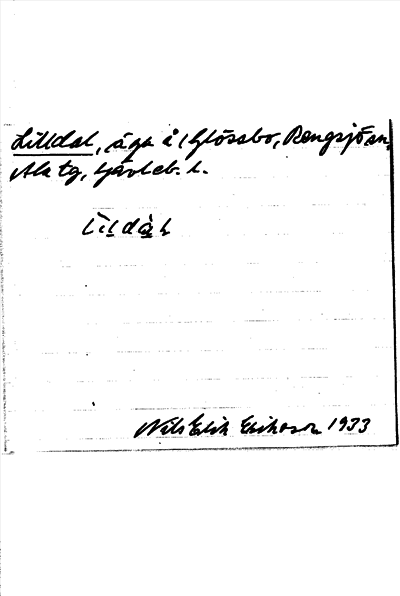 Lilldal, äga å i Glössbo, Rengsjö sn,
Ala tg, Gävleb. l.
Lildàl
Nils Erik Eriksson 1933